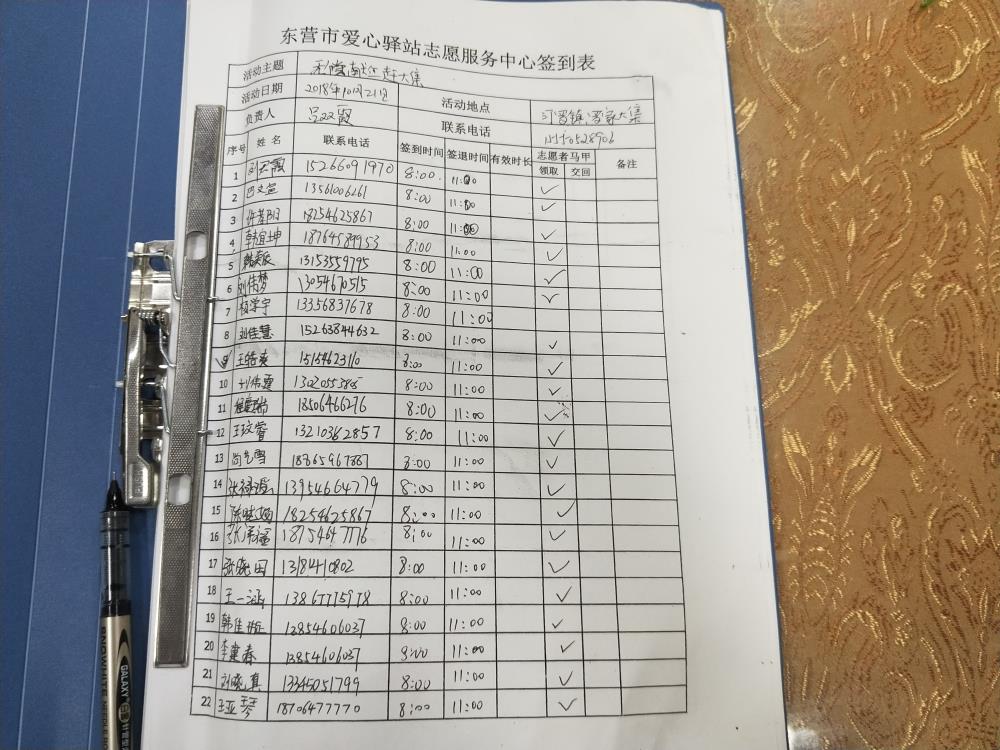 东营市爱心驿站志愿服务中心签到表
活动主题 赶大集
活动日期 2018年10月21日 活动地点 大集
负责人 吕双霞 联系电话
序号 姓名 联系电话 签到时间 签退时间 有效时长 志愿者马甲 备注
领取 交回
1 15266091970 8:00 11:00 ✓
2 13561006261 8:00 11:00 ✓
3 18254625867 8:00 11:00 ✓
4 韩宜坤 18764589953 8:00 11:00 ✓
5 13153559795 8:00 11:00 ✓
6 刘伟梦 13054670515 8:00 11:00 ✓
7 杨学宇 13356837678 8:00 11:00
8 刘佳慧 15263844632 8:00 11:00 ✓
王皓爽 15154623110 8:00 11:00 ✓
10 8:00 11:00 ✓
11 18506466276 8:00 11:00 ✓
12 王玟睿 13210382857 8:00 11:00 ✓
13 尚艺雪 8:00 11:00 ✓
14 13954664779 8:00 11:00 ✓
15 18254625867 8:00 11:00 ✓
16 18754647776 8:00 11:00 ✓
17 张晓田 8:00 11:00 ✓
18 王一涵 8:00 11:00 ✓
19 8:00 11:00 ✓
20 李建春 13854606037 8:00 11:00 ✓
21 13345051799 8:00 11:00 ✓
22 王亚琴 18706477770 8:00 11:00 ✓
GALAXY
SNOWHITE